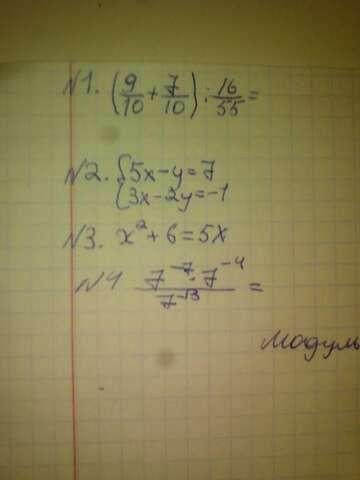 №1. (9/10 + 7/10) : 16/55 =
№2. { 5x-y=7
{ 3x-2y=-1
№3. x²+6=5x
№4 7⁻⁷·7⁻⁴ / 7⁻¹³ =
Модуль